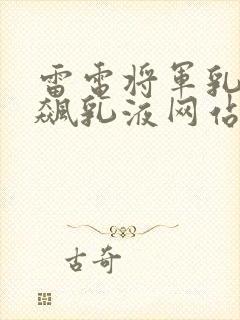 雷电将军乳
飙乳液网站
古奇